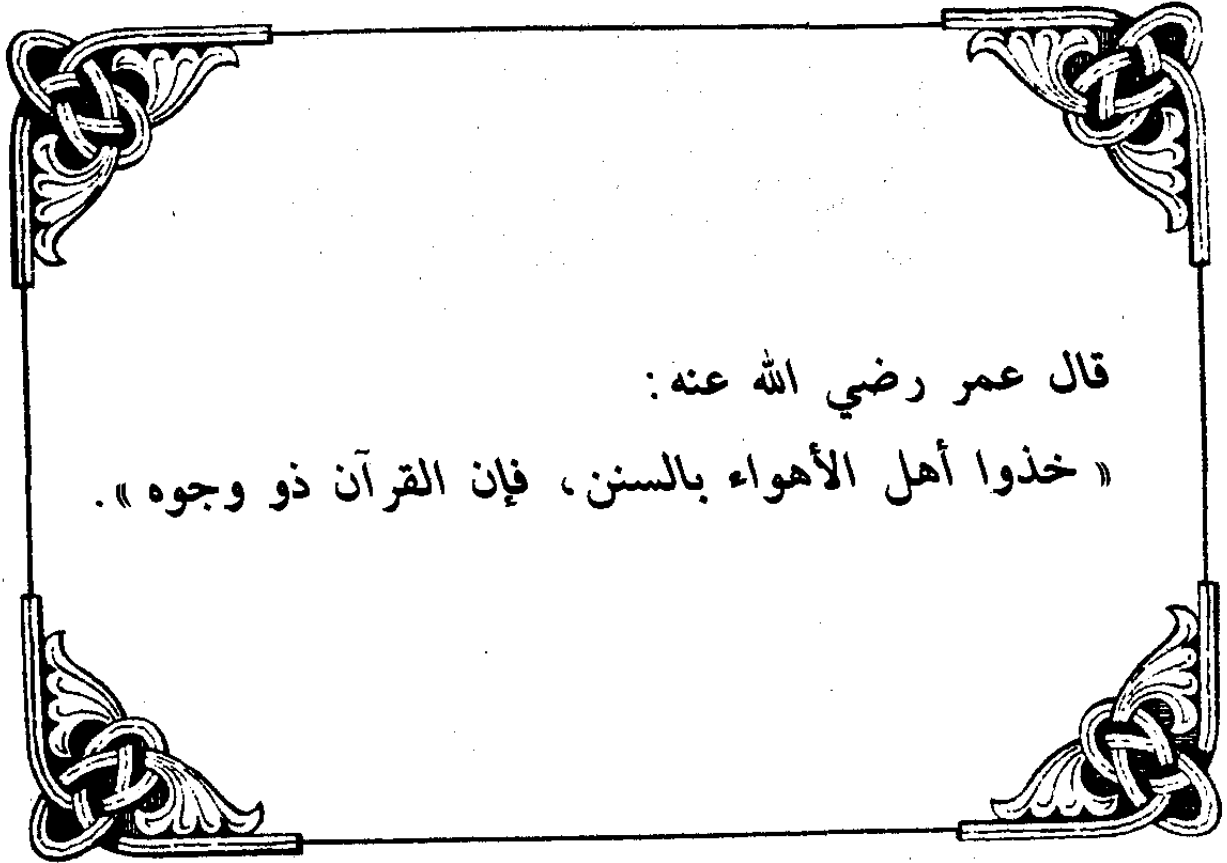 قال عمر رضي الله عنه:
« خذوا أهل الأهواء بالسنن، فإن القرآن ذو وجوه ».